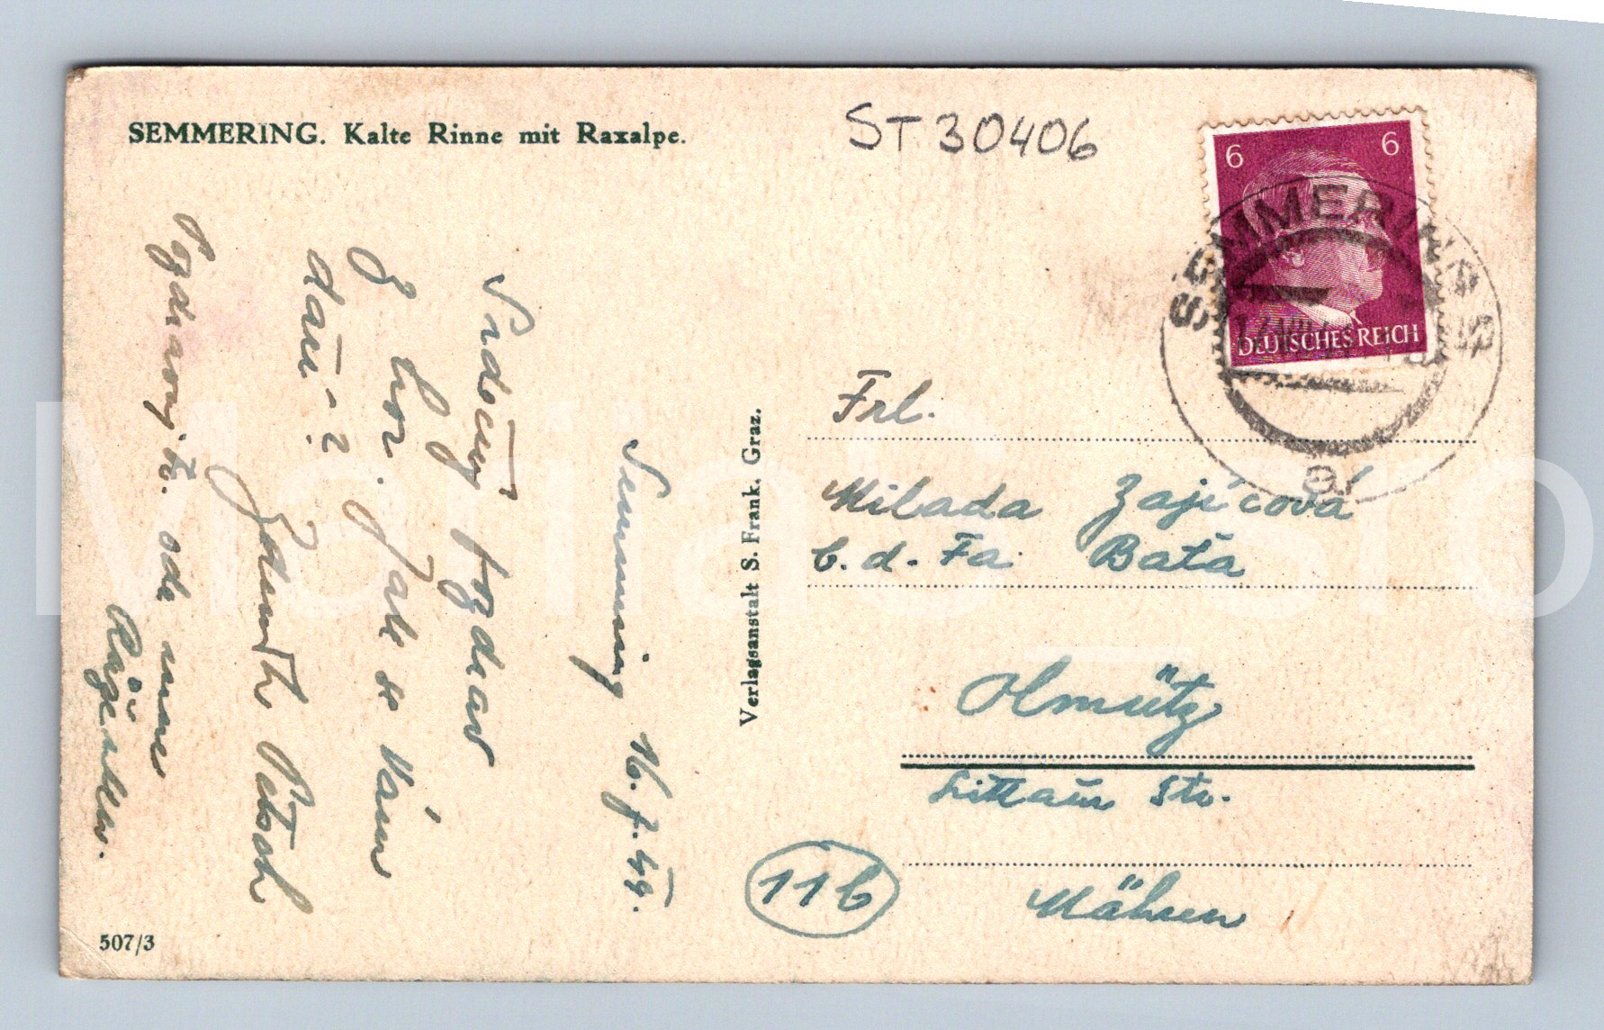 SEMMERING. Kalte Rinne mit Raxalpe.
ST 30406
6 6
DEUTSCHES REICH
SEMMERING
Semmering 16.
Srdečný pozdrav
z hor. Jak se Vám
daří-?
Zdeněk
Pozdravuj. oda
Verlagsanstalt S. Frank, Graz.
Frl.
Milada Zajícová
b. d. Fa. Baťa
Olmütz
Littauer Str.
Mähren
11b
507/3